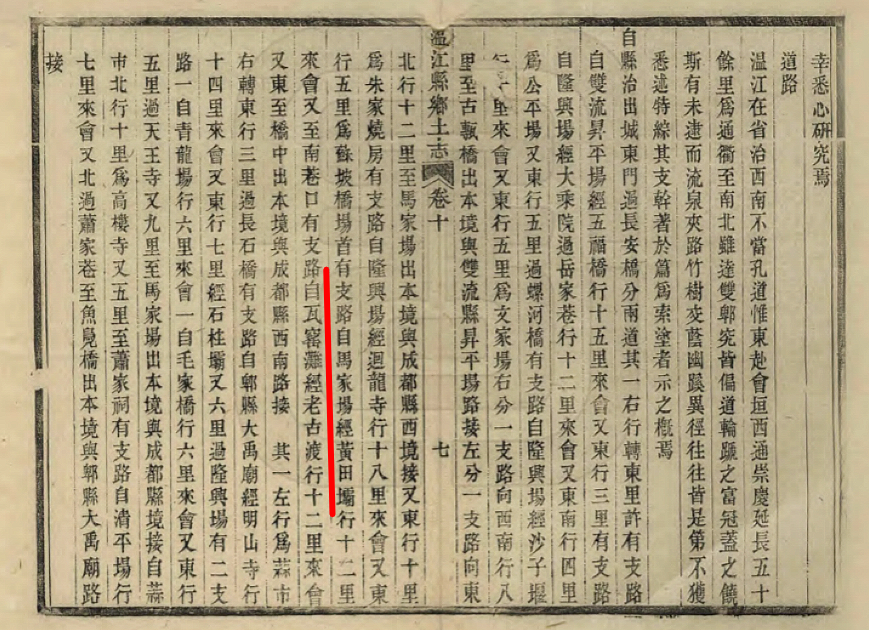 幸悉心研究焉
道路
溫江在省治西南不當孔道惟東赴會垣西通崇慶延長五十
餘里爲通衢至南北雖達雙郫究皆偪道輪蹏之富冠蓋之饒
斯有未逮而流泉夾路竹樹交蔭幽蹊異徑往往皆是第不獲
悉述特綜其支幹著於篇爲索塗者示之概焉
自縣治出城東門過長安橋分兩道其一右行轉東里許有支路
自雙流昇平場經五福橋行十五里來會又東行三里有支路
自隆興場經大乘院過岳家巷行十二里來會又東南行四里
爲公平場又東行五里過螺河橋有支路自隆興場經沙子堰
行里來會又東行五里爲文家場右分一支路向西南行八
里至古橋出本境與雙流縣昇平場路接左分一支路向東
溫江縣鄉土志 卷十 七
北行十二里至馬家場出本境與成都縣西境接又東行十里
爲朱家燒房有支路自隆興場經迴龍寺行十八里來會又東
行五里爲蘇坡橋場首有支路自馬家場經黃田壩行十二里
來會又至南巷口有支路自瓦窰灘經老古渡行十二里來會
又東至橋中出本境與成都縣西南路接 其一左行爲蒜市
右轉東行三里過長石橋有支路自郫縣大禹廟經明山寺行
十四里來會又東行七里經石柱壩又六里過隆興場有二支
路一自青龍場行六里來會一自毛家橋行六里來會又東行
五里過天王寺又九里至馬家場出本境與成都縣境接自蒜
市北行十里爲高樓寺又五里至蕭家祠有支路自清平場行
七里來會又北過蕭家巷至魚鳧橋出本境與郫縣大禹廟路
接